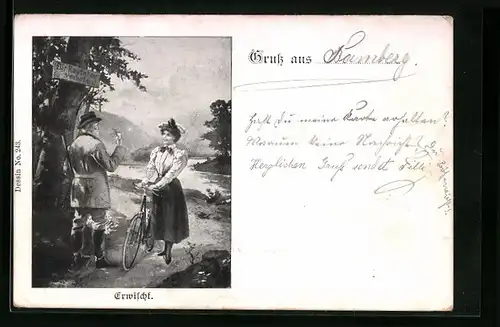 Dessin No. 243.
Erwischt.
Gruß aus Bamberg.
Hast Du meine Karte erhalten?
Warum keine Nachricht?
Herzlichen Gruß sendet